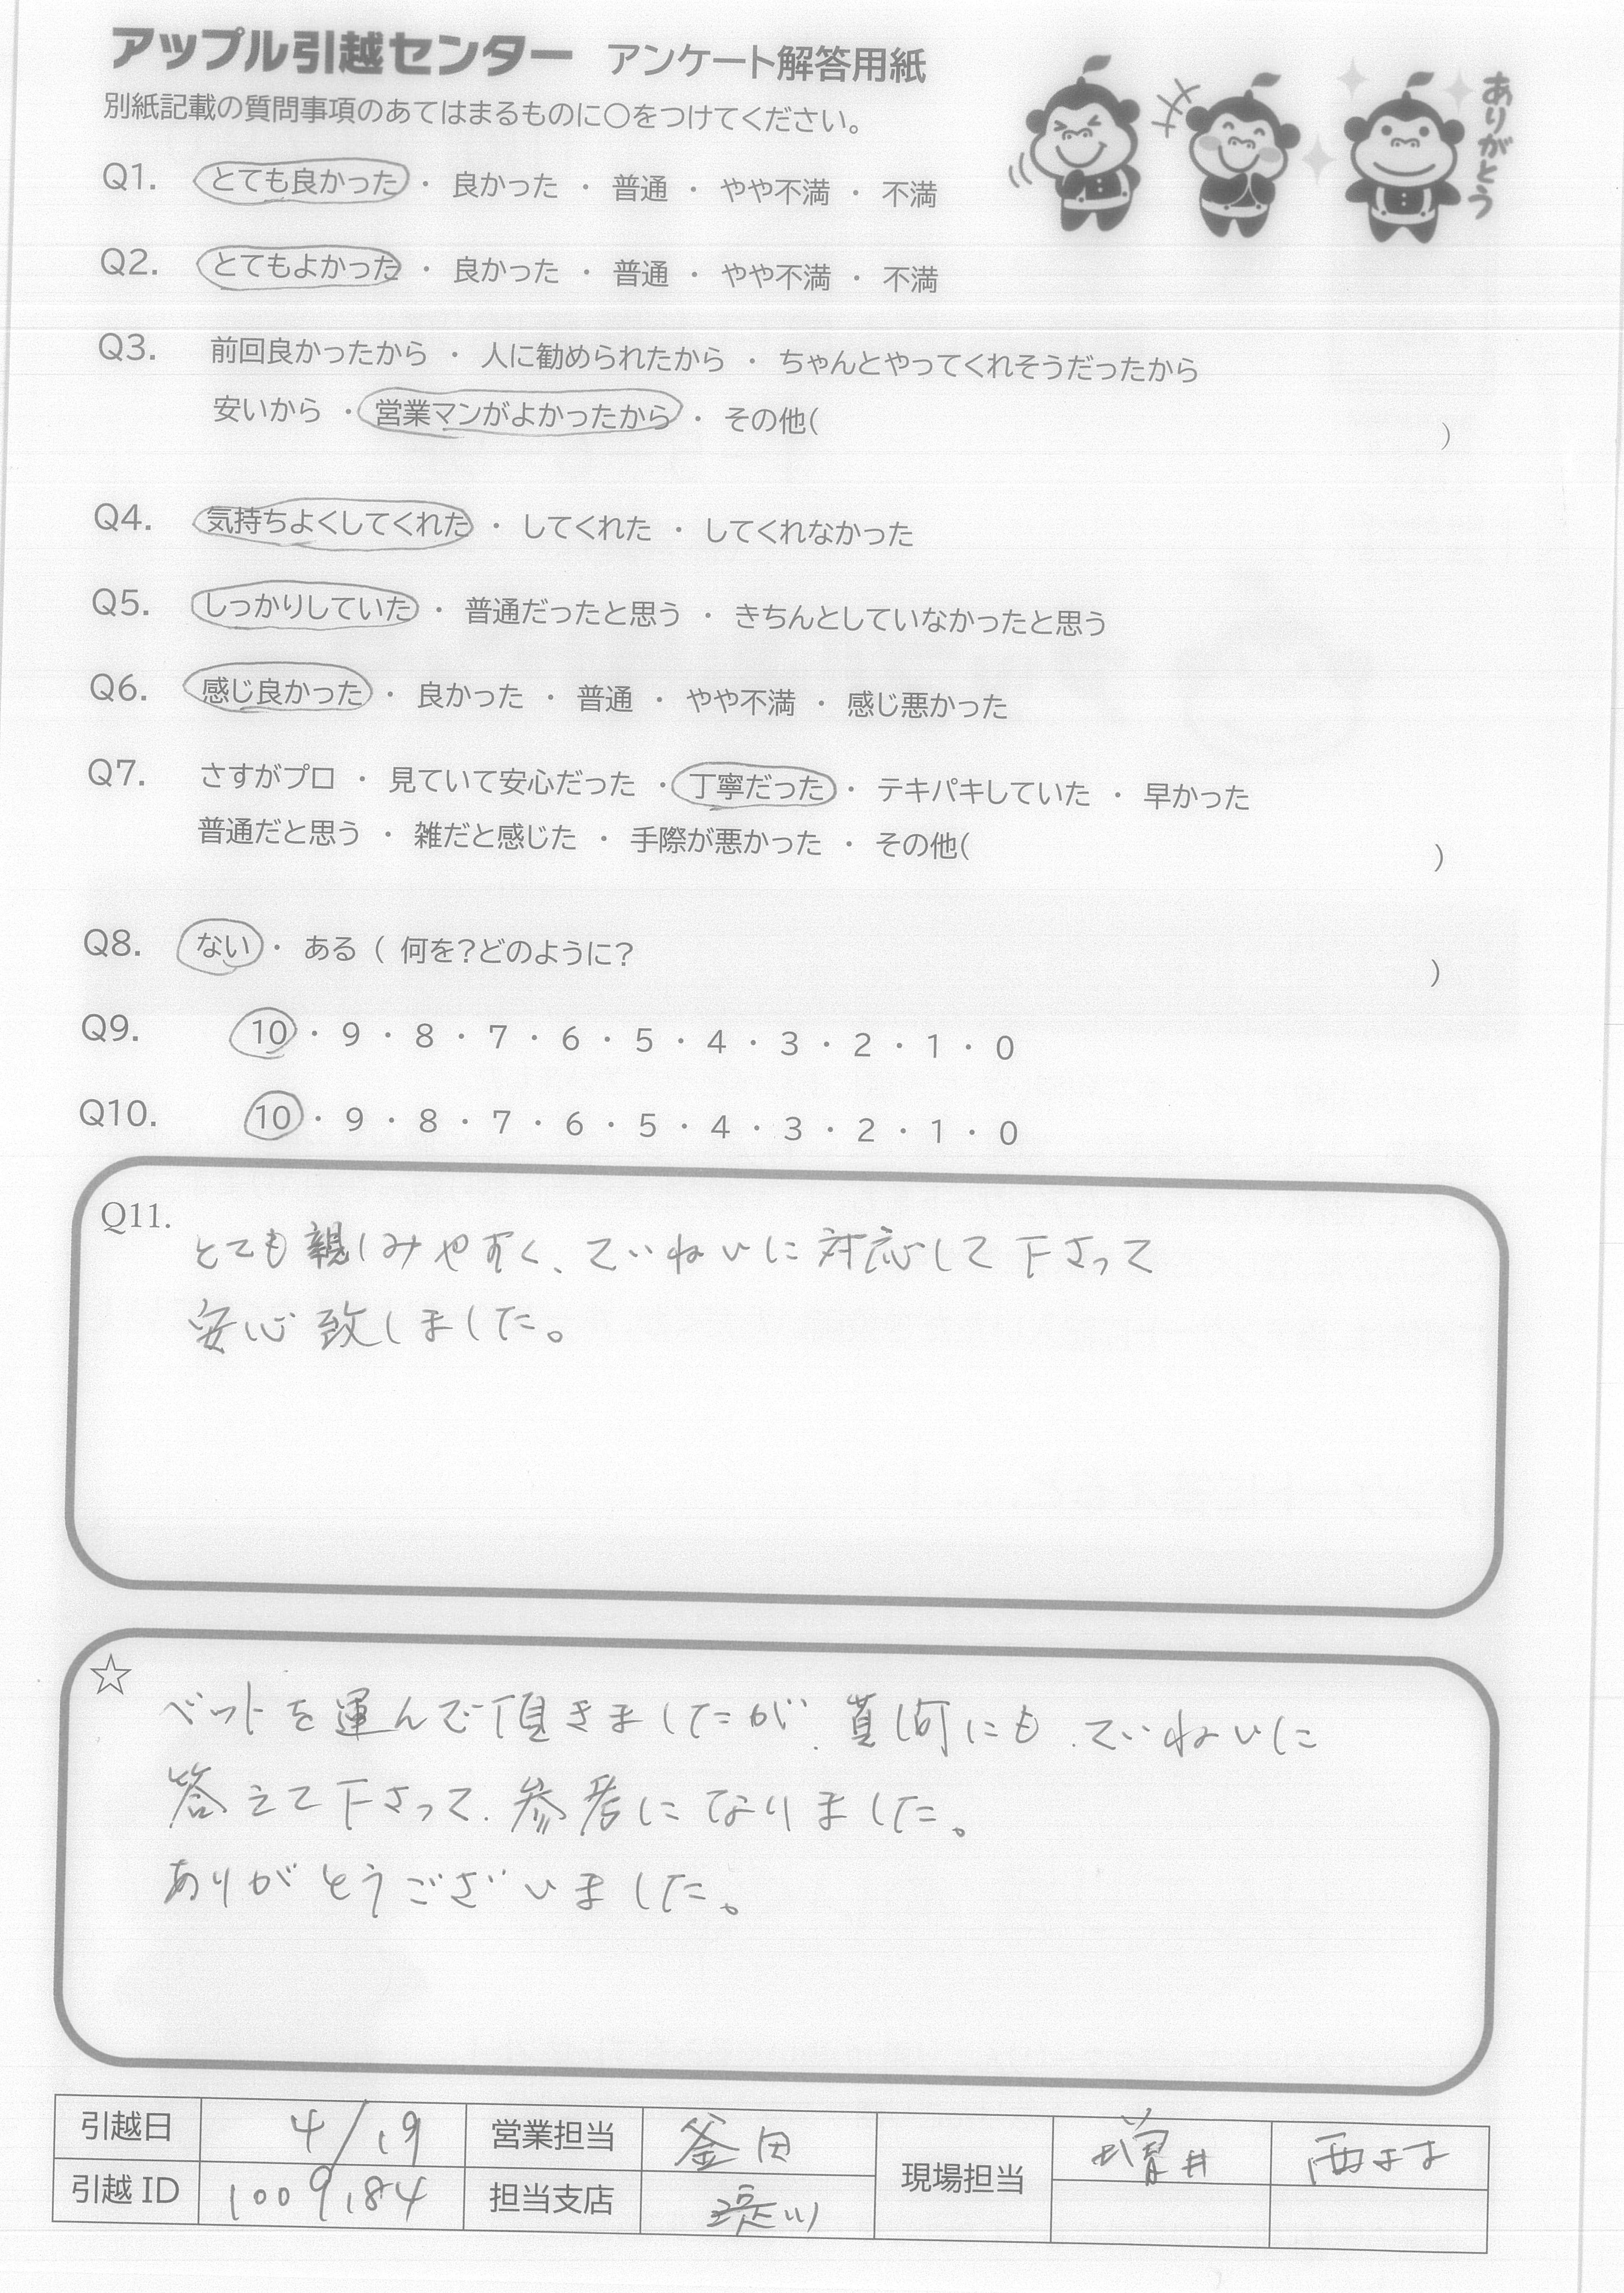 アップル引越センター アンケート解答用紙
別紙記載の質問事項のあてはまるものに〇をつけてください。
ありがとう
Q1. とても良かった ・ 良かった ・ 普通 ・ やや不満 ・ 不満
Q2. とてもよかった ・ 良かった ・ 普通 ・ やや不満 ・ 不満
Q3. 前回良かったから ・ 人に勧められたから ・ ちゃんとやってくれそうだったから
安いから ・ 営業マンがよかったから ・ その他( )
Q4. 気持ちよくしてくれた ・ してくれた ・ してくれなかった
Q5. しっかりしていた ・ 普通だったと思う ・ きちんとしていなかったと思う
Q6. 感じ良かった ・ 良かった ・ 普通 ・ やや不満 ・ 感じ悪かった
Q7. さすがプロ ・ 見ていて安心だった ・ 丁寧だった ・ テキパキしていた ・ 早かった
普通だと思う ・ 雑だと感じた ・ 手際が悪かった ・ その他( )
Q8. ない ・ ある ( 何を?どのように? )
Q9. 10 ・ 9 ・ 8 ・ 7 ・ 6 ・ 5 ・ 4 ・ 3 ・ 2 ・ 1 ・ 0
Q10. 10 ・ 9 ・ 8 ・ 7 ・ 6 ・ 5 ・ 4 ・ 3 ・ 2 ・ 1 ・ 0
Q11. とても親しみやすく、ていねいに対応して下さって
安心致しました。
☆ ベットを運んで頂きましたが、質問にも、ていねいに
答えて下さって、参考になりました。
ありがとうございました。
引越日 4/19 営業担当 釜田 現場担当 増井
引越ID 1009184 担当支店